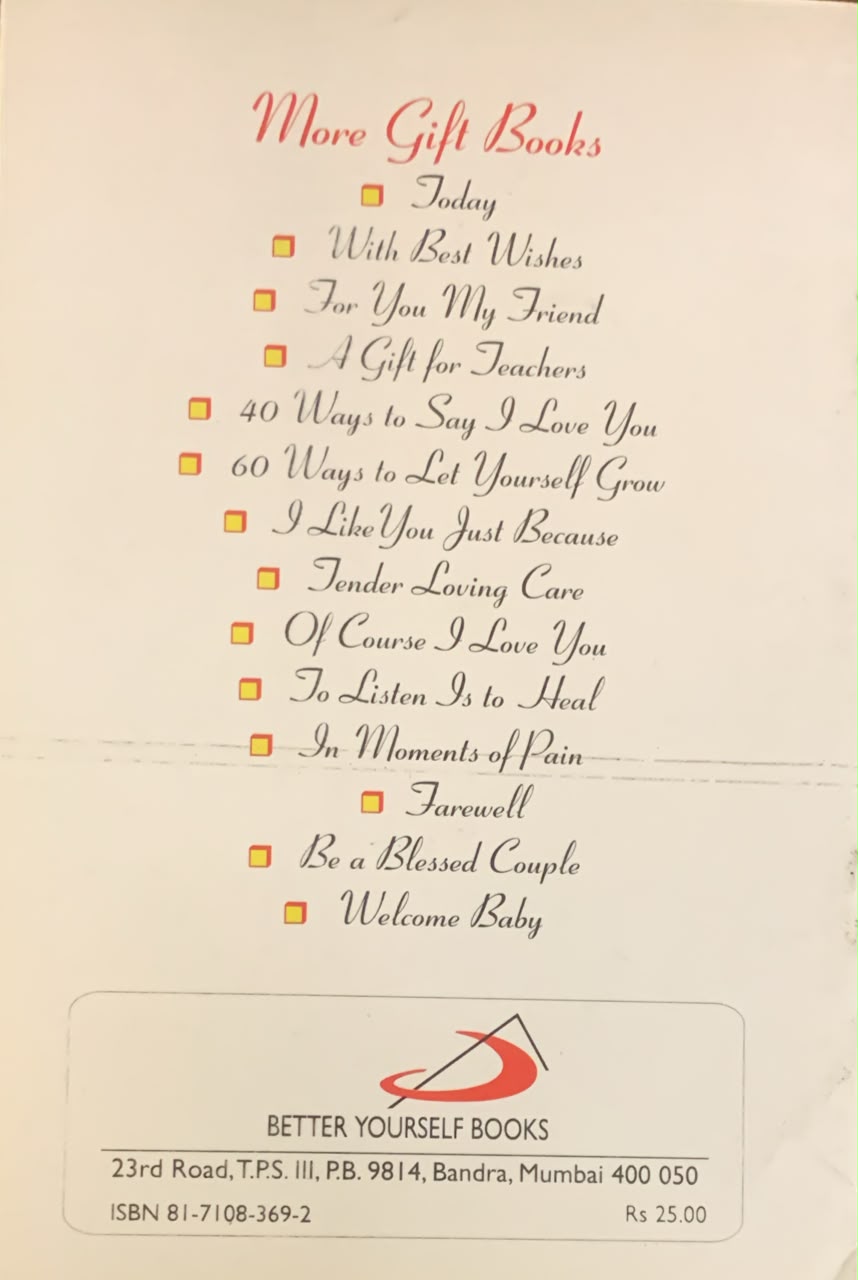 More Gift Books
Today
With Best Wishes
For You My Friend
A Gift for Teachers
40 Ways to Say I Love You
60 Ways to Let Yourself Grow
I Like You Just Because
Tender Loving Care
Of Course I Love You
To Listen Is to Heal
In Moments of Pain
Farewell
Be a Blessed Couple
Welcome Baby
BETTER YOURSELF BOOKS
23rd Road, T.P.S. III, P.B. 9814, Bandra, Mumbai 400 050
ISBN 81-7108-369-2 Rs 25.00